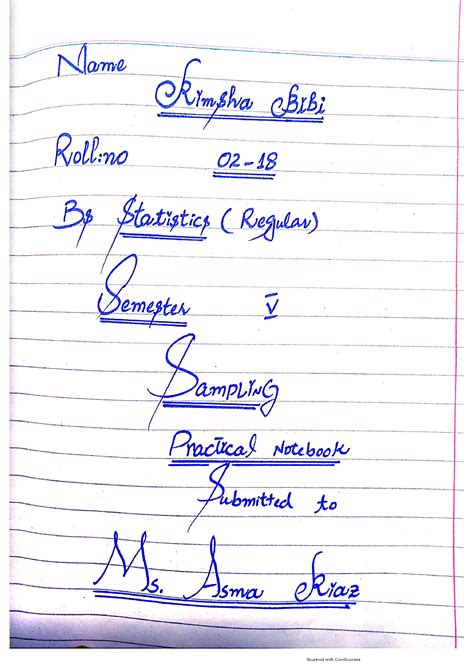 Name
Rimsha Bibi
Roll:no 02-18
Bs Statistics (Regular)
Semester V
Sampling
Practical Notebook
Submitted to
Ms. Asma Riaz
Scanned with CamScanner